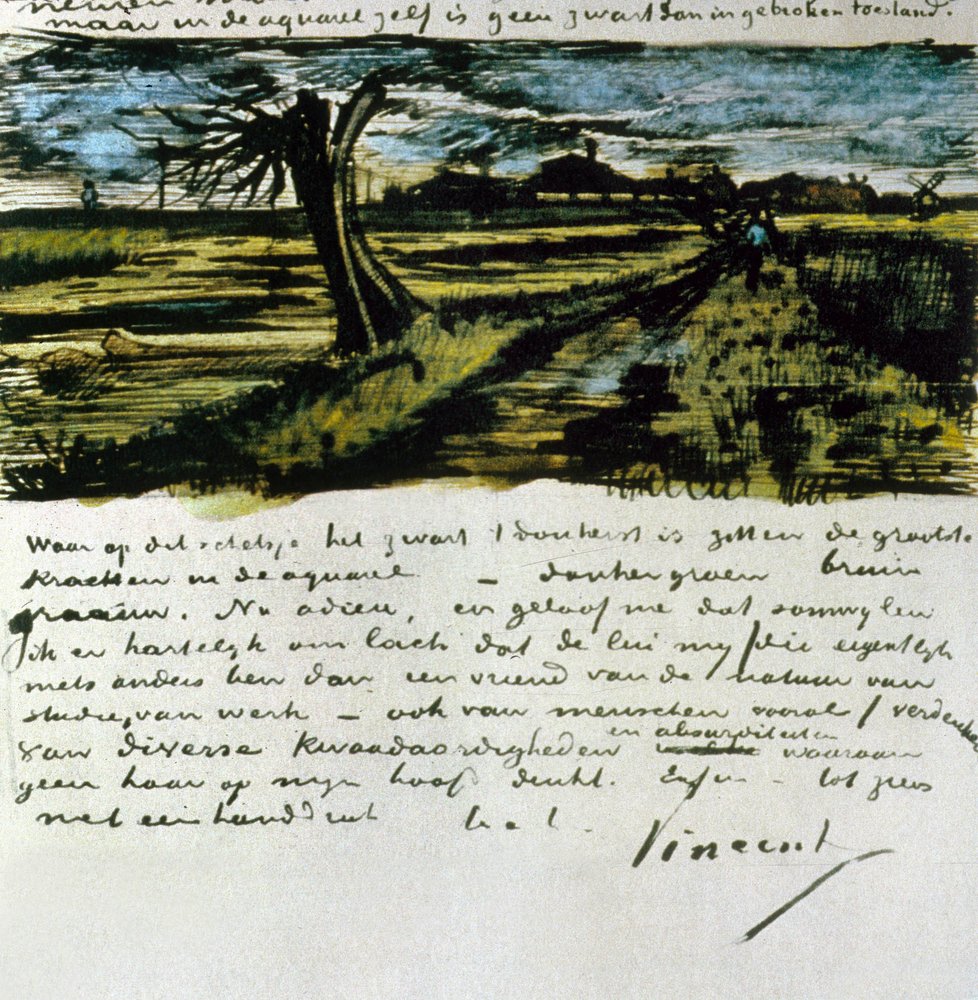 maar in de aquarel zelf is geen zwart dan in gebroken toestand.
Waar op dit schetsje het zwart 't donkerst is zitten de grootste
krachten in de aquarel – donkergroen bruin
graauw. Nu adieu, en geloof me dat somwylen
ik er hartelyk om lach dat de lui my / die eigentlyk
niets anders ben dan een vriend van de natuur van
studie, van werk – ook van menschen vooral / verdenken
van diverse kwaadaardigheden en absurditeiten waaraan
geen haar op myn hoofd denkt. Enfin – tot ziens
met een handdruk t. à t.
Vincent